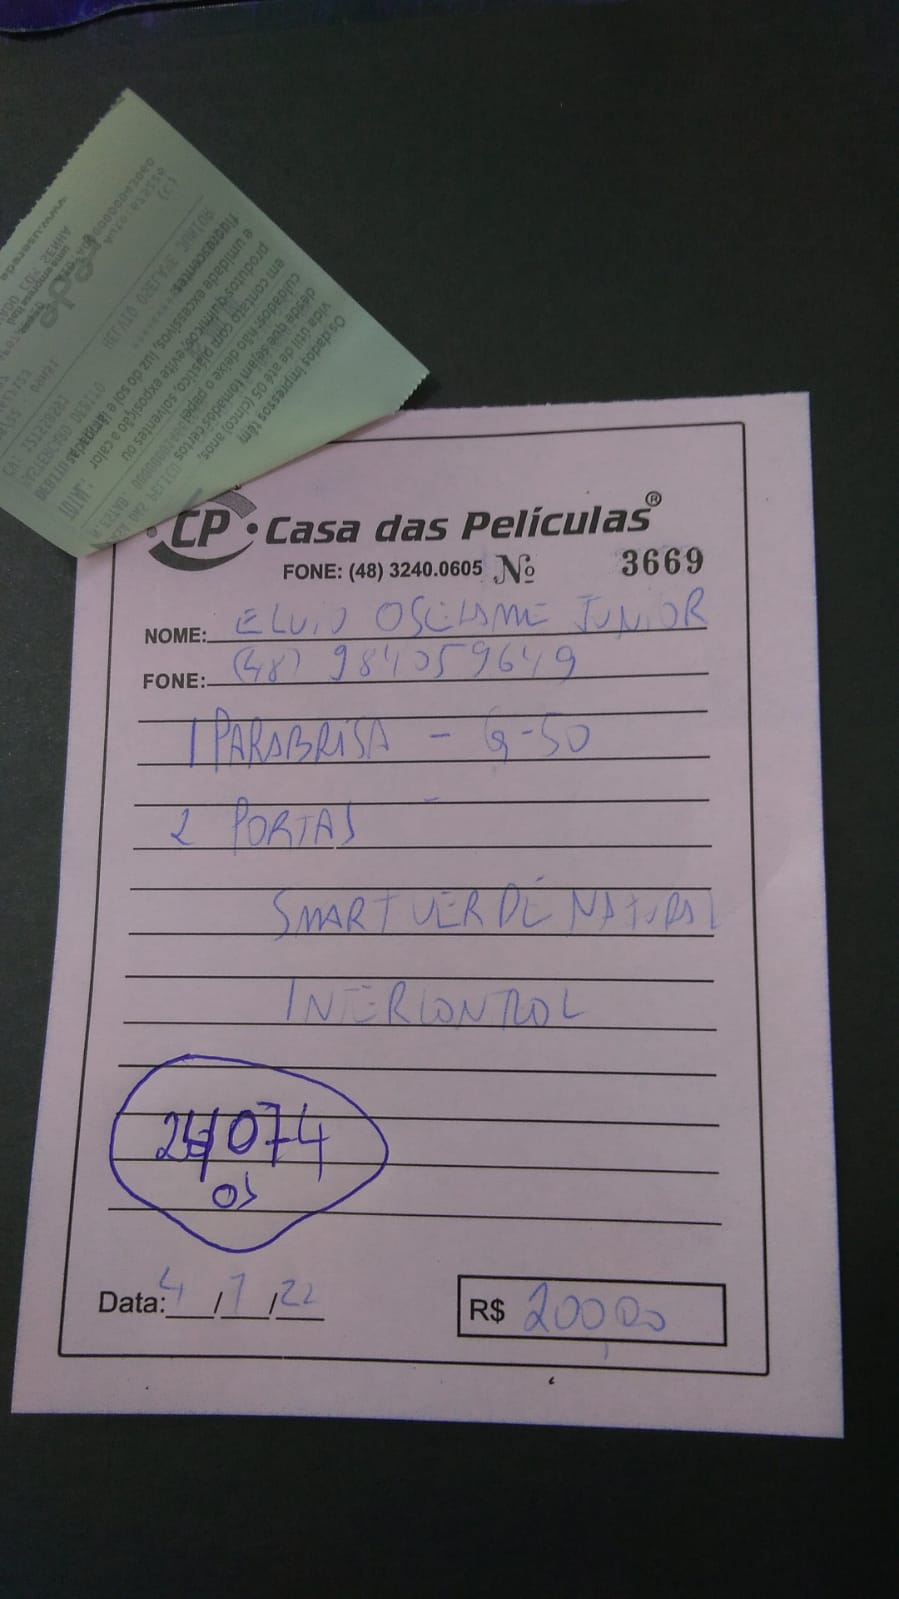 CP • Casa das Películas®
FONE: (48) 3240.0605 Nº 3669
NOME: ELVIO OSELAME JUNIOR
FONE: (48) 984059649
1 PARABRISA - G-50
2 PORTAS -
SMART VERDE NATURAL
INTERCONTROL
074
OS
Data: 4/7/22
R$ 200,00
Os dados impressos têm
vida útil de até 05 (cinco) anos,
desde que sejam tomados certos
cuidados: não deixe o papel
em contato com plástico, solventes ou
produtos químicos; evite exposição a calor
e umidade excessivos, luz do sol e lâmpadas
fluorescentes.